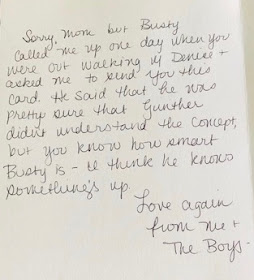 Sorry, mom but Busty
called me up one day when you
were out walking w/ Denise +
asked me to send you this
card. He said that he was
pretty sure that Gunther
didn't understand the concept,
but you know how smart
Busty is - I think he knows
something's up.
Love again
from me +
The Boys-